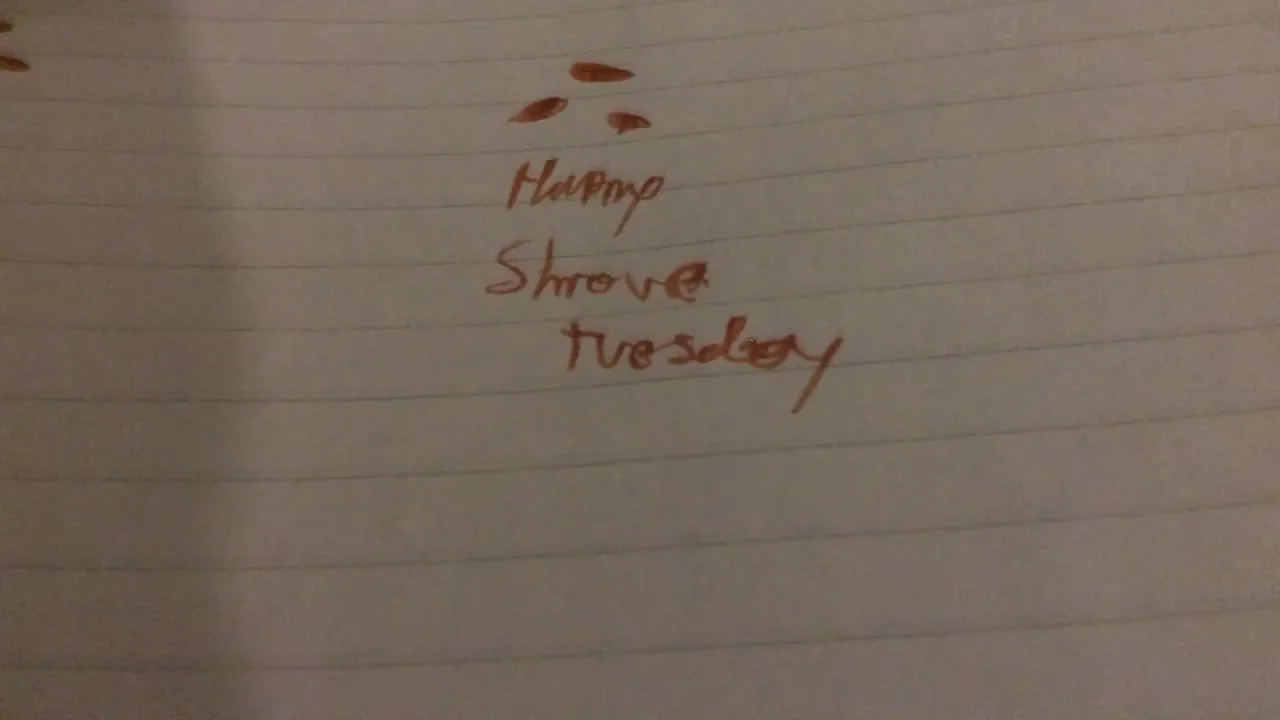 Happy
Shrove
tuesday